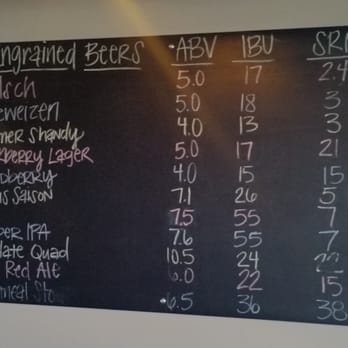 ngrained Beers ABV IBU SRM
lsch 5.0 17 2.4
eweizen 5.0 18 3
mer Shandy 4.0 13 3
kberry Lager 5.0 17 21
dberry 4.0 15 15
us Saison 7.1 26 5
7.5 55 7
per IPA 7.6 55 7
late Quad 10.5 24
Red Ale 6.0 22 15
meal Stout 6.5 36 38